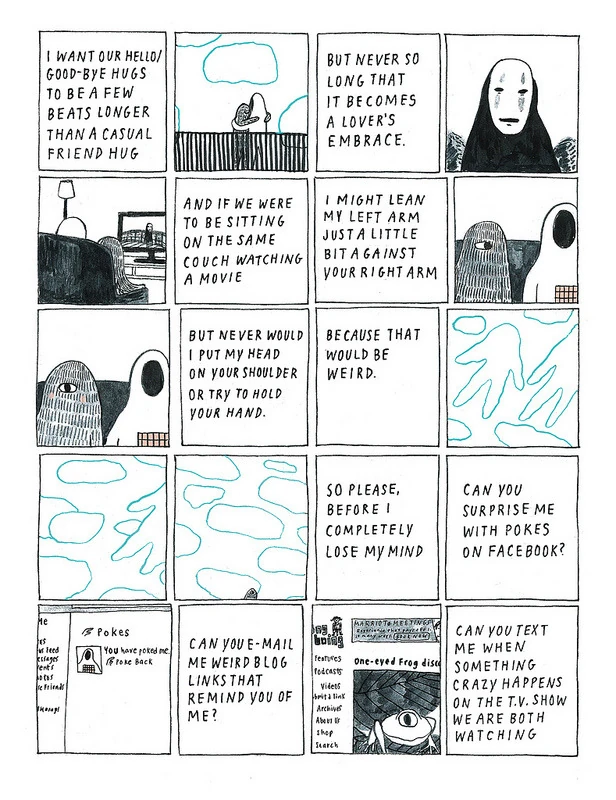 I WANT OUR HELLO/
GOOD-BYE HUGS
TO BE A FEW
BEATS LONGER
THAN A CASUAL
FRIEND HUG
BUT NEVER SO
LONG THAT
IT BECOMES
A LOVER'S
EMBRACE.
AND IF WE WERE
TO BE SITTING
ON THE SAME
COUCH WATCHING
A MOVIE
I MIGHT LEAN
MY LEFT ARM
JUST A LITTLE
BIT AGAINST
YOUR RIGHT ARM
BUT NEVER WOULD
I PUT MY HEAD
ON YOUR SHOULDER
OR TRY TO HOLD
YOUR HAND.
BECAUSE THAT
WOULD BE
WEIRD.
SO PLEASE,
BEFORE I
COMPLETELY
LOSE MY MIND
CAN YOU
SURPRISE ME
WITH POKES
ON FACEBOOK?
Pokes
You have poked me.
Poke Back
CAN YOU E-MAIL
ME WEIRD BLOG
LINKS THAT
REMIND YOU OF
ME?
MARRIOTT MEETINGS
BOOK NOW
boing
Features
Podcasts
Videos
Archives
About Us
Shop
Search
One-eyed Frog disc
CAN YOU TEXT
ME WHEN
SOMETHING
CRAZY HAPPENS
ON THE T.V. SHOW
WE ARE BOTH
WATCHING